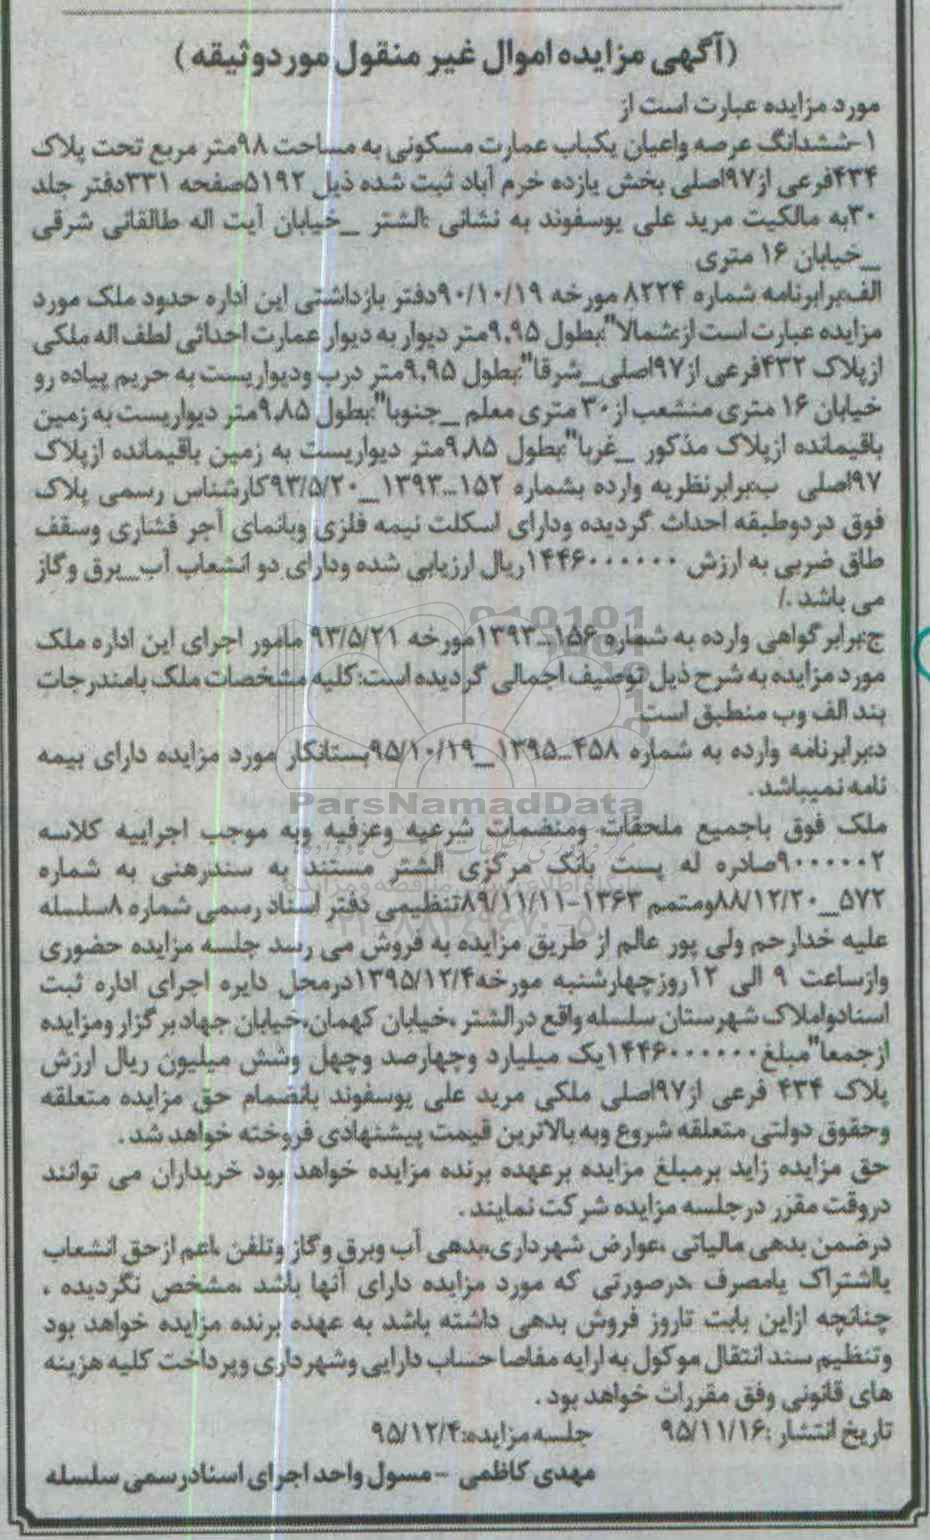 (آگهی مزایده اموال غیر منقول موردوثیقه )
مورد مزایده عبارت است از
۱-ششدانگ عرصه واعیان یکباب عمارت مسکونی به مساحت ۹۸متر مربع تحت پلاک
۴۳۴فرعی از۹۷اصلی بخش یازده خرم آباد ثبت شده ذیل ۵۱۹۲صفحه ۳۳۱دفتر جلد
۳۰به مالکیت مرید علی یوسفوند به نشانی :الشتر _خیابان آیت اله طالقانی شرقی
_خیابان ۱۶ متری
الف:برابرنامه شماره ۸۲۲۴ مورخه ۹۰/۱۰/۱۹دفتر بازداشتی این اداره حدود ملک مورد
مزایده عبارت است از:شمالا":بطول ۹,۹۵متر دیوار به دیوار عمارت احداثی لطف اله ملکی
ازپلاک ۴۳۲فرعی از۹۷اصلی_شرقا":بطول ۹,۹۵متر درب ودیواریست به حریم پیاده رو
خیابان ۱۶ متری منشعب از۳۰ متری معلم _جنوبا":بطول ۹,۸۵متر دیواریست به زمین
باقیمانده ازپلاک مذکور _غربا":بطول ۹,۸۵متر دیواریست به زمین باقیمانده ازپلاک
۹۷اصلی ب:برابرنظریه وارده بشماره ۱۵۲-۱۳۹۳_۹۳/۵/۲۰کارشناس رسمی پلاک
فوق دردوطبقه احداث گردیده ودارای اسکلت نیمه فلزی وبانمای آجر فشاری وسقف
طاق ضربی به ارزش ۱۴۴۶۰۰۰۰۰۰ریال ارزیابی شده ودارای دو انشعاب آب_برق وگاز
می باشد ./
ج:برابر گواهی وارده به شماره ۱۵۶-۱۳۹۳مورخه ۹۳/۵/۲۱ مامور اجرای این اداره ملک
مورد مزایده به شرح ذیل توصیف اجمالی گردیده است:کلیه مشخصات ملک بامندرجات
بند الف وب منطبق است
د:برابرنامه وارده به شماره ۴۵۸-۱۳۹۵_۹۵/۱۰/۱۹بستانکار مورد مزایده دارای بیمه
نامه نمیباشد .
ParsNamadData
ملک فوق باجمیع ملحقات ومنضمات شرعیه وعرفیه وبه موجب اجراییه کلاسه
۹۰۰۰۰۰۲صادره له پست بانک مرکزی الشتر مستند به سندرهنی به شماره
۵۷۲_۸۸/۱۲/۲۰ومتمم ۱۳۶۳-۸۹/۱۱/۱۱تنظیمی دفتر اسناد رسمی شماره ۸سلسله
علیه خدارحم ولی پور عالم از طریق مزایده به فروش می رسد جلسه مزایده حضوری
وازساعت ۹ الی ۱۲روزچهارشنبه مورخه۱۳۹۵/۱۲/۴درمحل دایره اجرای اداره ثبت
اسنادواملاک شهرستان سلسله واقع درالشتر ،خیابان کهمان،خیابان جهادبر گزار ومزایده
ازجمعا"مبلغ۱۴۴۶۰۰۰۰۰۰یک میلیارد وچهارصد وچهل وشش میلیون ریال ارزش
پلاک ۴۳۴ فرعی از۹۷اصلی ملکی مرید علی یوسفوند بانضمام حق مزایده متعلقه
وحقوق دولتی متعلقه شروع وبه بالاترین قیمت پیشنهادی فروخته خواهد شد .
حق مزایده زاید برمبلغ مزایده برعهده برنده مزایده خواهد بود خریداران می توانند
دروقت مقرر درجلسه مزایده شر کت نمایند .
درضمن بدهی مالیاتی ،عوارض شهرداری،بدهی آب وبرق وگاز وتلفن ،اعم ازحق انشعاب
یااشتراک یامصرف ،درصورتی که مورد مزایده دارای آنها باشد ،مشخص نگردیده ،
چنانچه ازاین بابت تاروز فروش بدهی داشته باشد به عهده برنده مزایده خواهد بود
وتنظیم سند انتقال موکول به ارایه مفاصا حساب دارایی وشهرداری وپرداخت کلیه هزینه
های قانونی وفق مقررات خواهد بود .
تاریخ انتشار :۹۵/۱۱/۱۶ جلسه مزایده:۹۵/۱۲/۴
مهدی کاظمی -مسول واحد اجرای اسنادرسمی سلسله